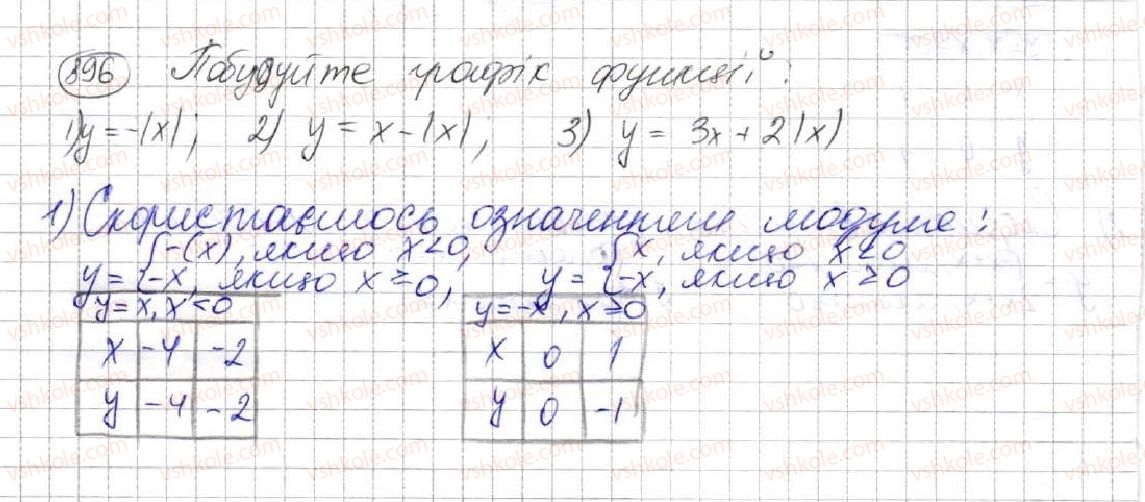 896 Побудуйте графік функції:
1) y = -|x|; 2) y = x - |x|; 3) y = 3x + 2|x|
1) Скористаємось означенням модуля:
y = { -(x), якщо x < 0, -x, якщо x ≥ 0, y = { x, якщо x < 0 -x, якщо x ≥ 0
y = x, x < 0 y = -x, x ≥ 0
x -4 -2 x 0 1
y -4 -2 y 0 -1
vshkole.com